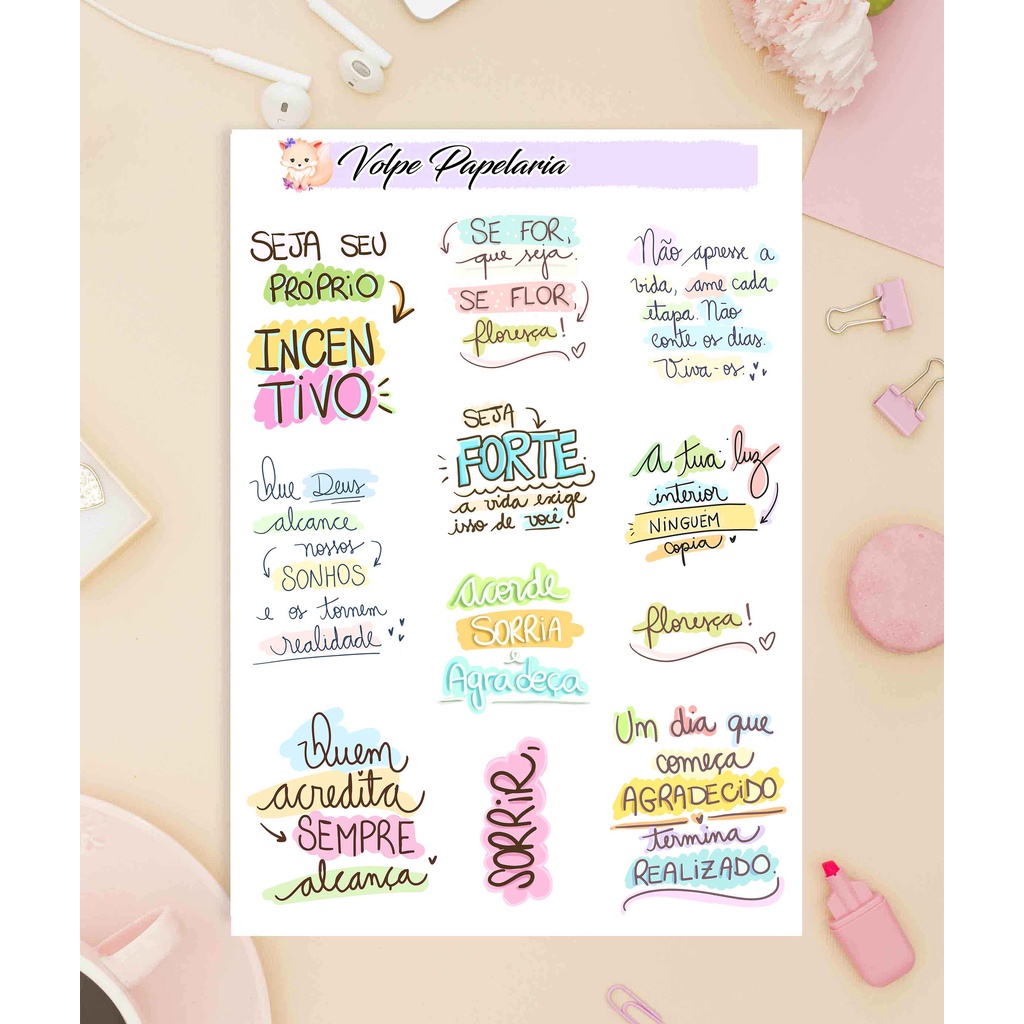 Volpe Papelaria
SEJA SEU
PRÓPRIO
INCEN
TIVO
SE FOR,
que seja.
SE FLOR,
floresça!
Não apresse a
vida, ame cada
etapa. Não
conte os dias.
Viva-os.
Que Deus
alcance
nossos
SONHOS
e os tornem
realidade
SEJA
FORTE
a vida exige
isso de você.
A tua luz
interior
NINGUÉM
copia
Acorde
SORRIA
e
Agradeça
floresça!
Quem
acredita
SEMPRE
alcança
SORRIR,
Um dia que
começa
AGRADECIDO
termina
REALIZADO.